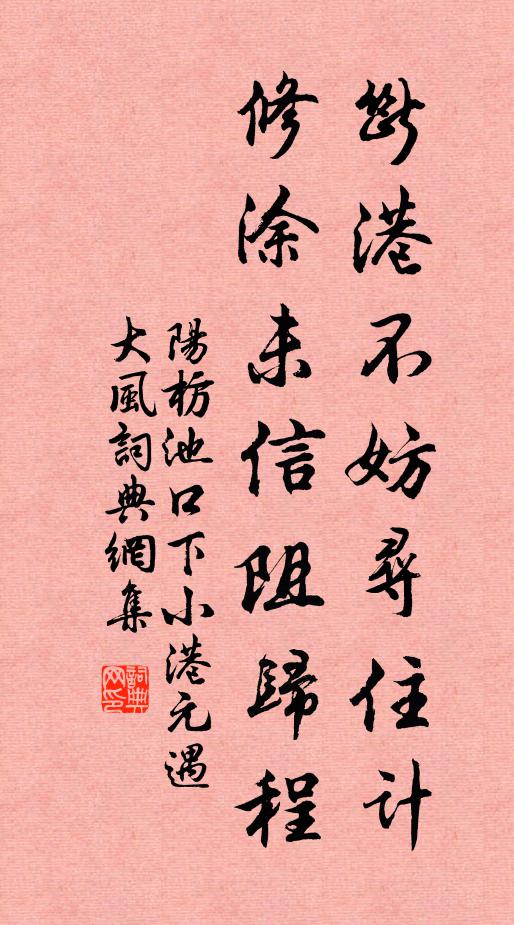 斷港不妨尋住計
修涂未信阻歸程
陽枋池口下小港元遇
大風詞典網集
詞典网印